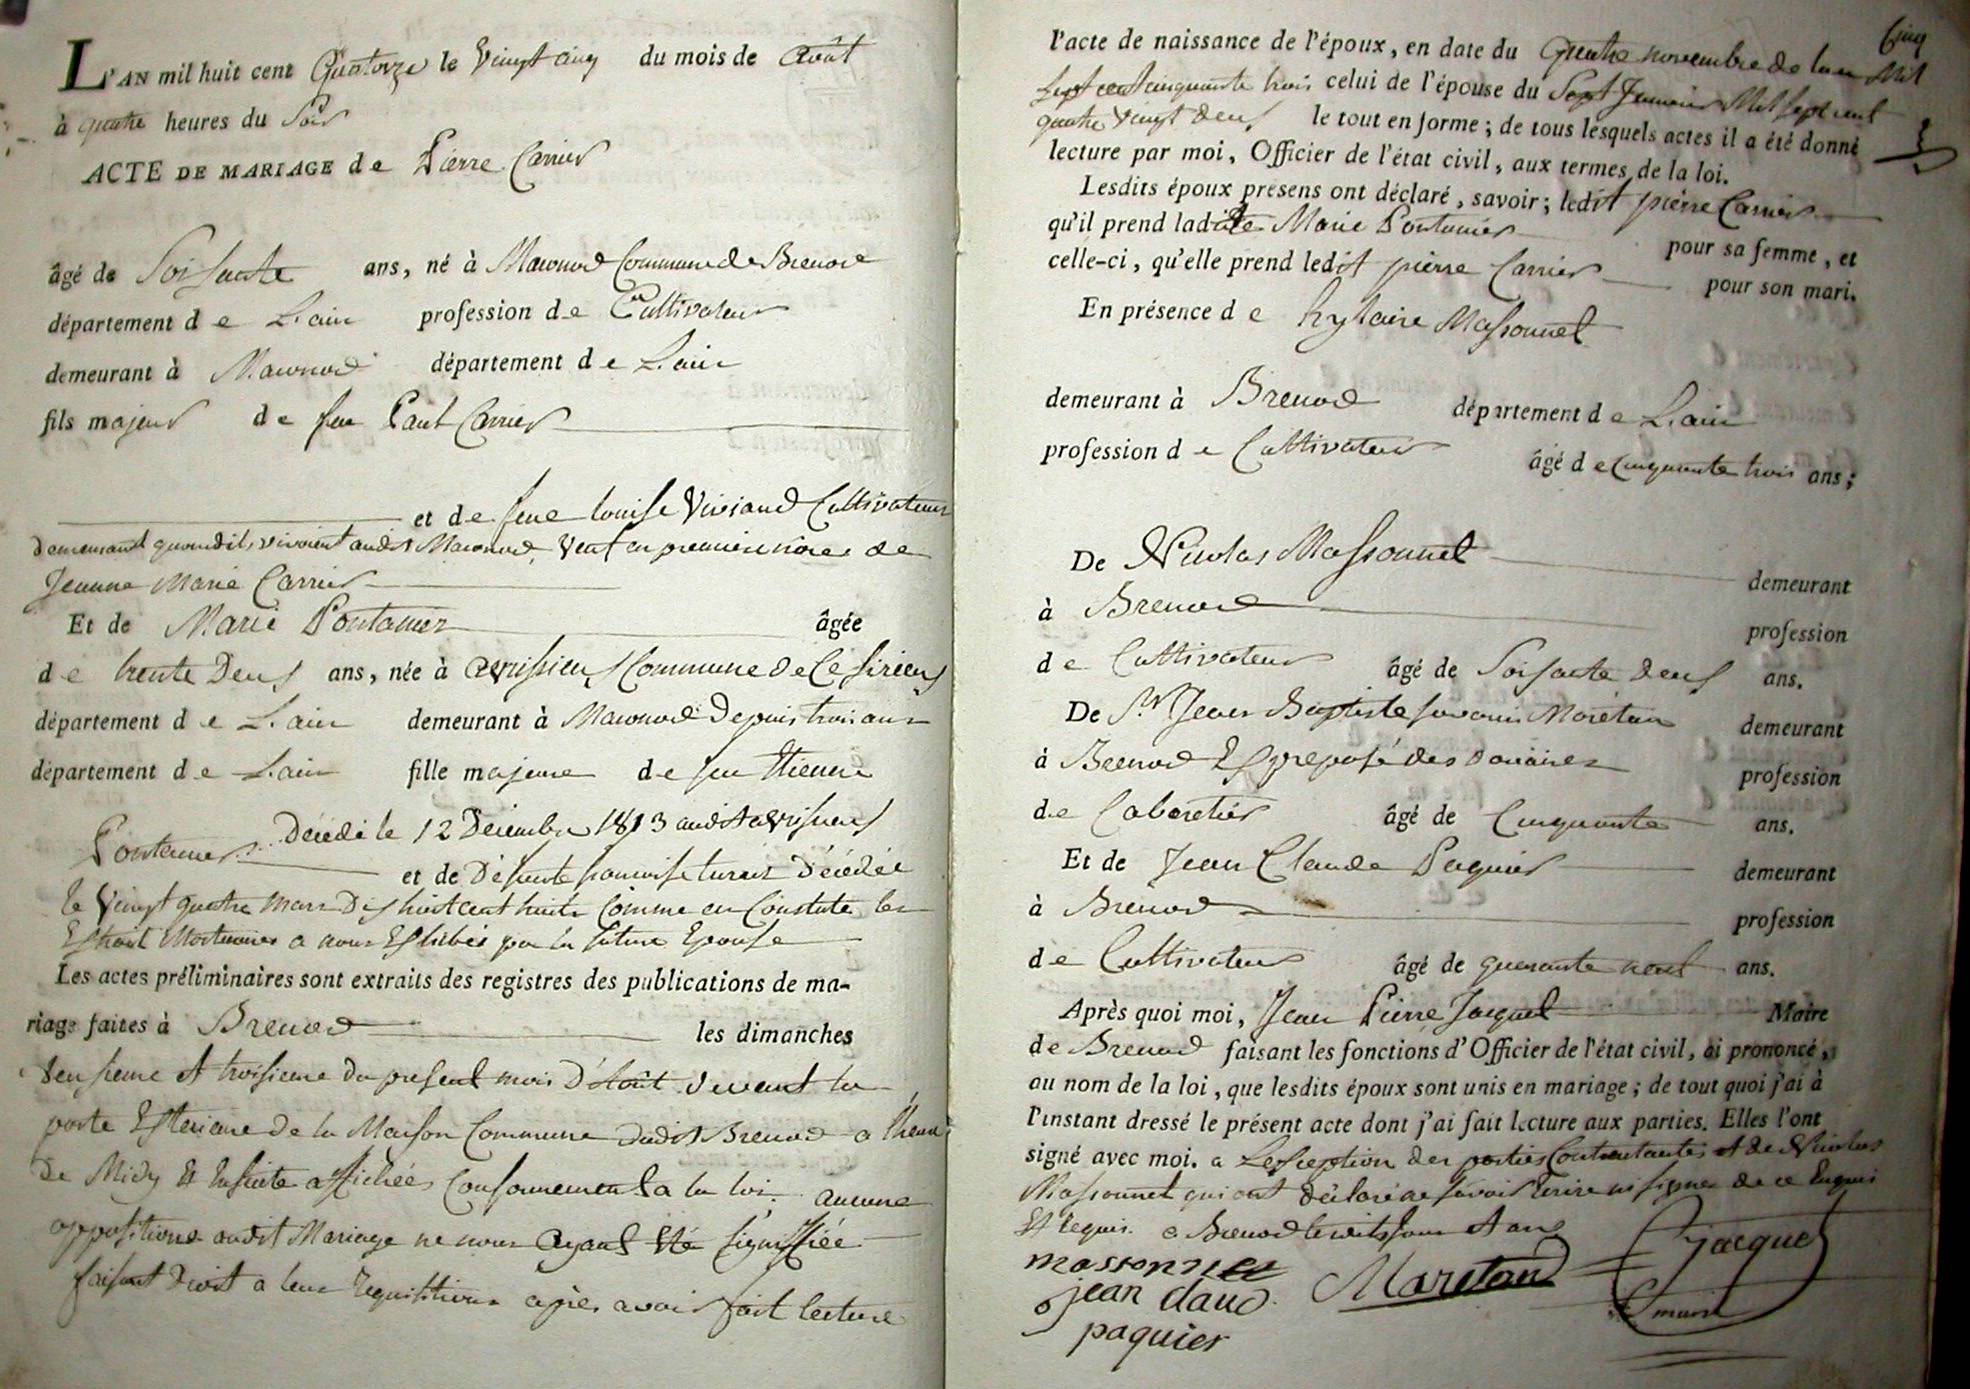 L'AN mil huit cent Quatorze le Vingt cinq du mois de Août
à quatre heures du Soir
ACTE DE MARIAGE de Pierre Carrier
âgé de Soisante ans, né à Macconod Commune de Brenod
département de L'ain profession de Cultivateur
demeurant à Macconod département de L'ain
fils majeur de feu Paul Carrier
et de feue louise Viviand Cultivateurs
demeurant quand ils vivoient audit Macconod, Veuf en premiere noces de
Jeanne Marie Carrier
Et de Marie Pontanier âgée
de trente Deux ans, née à Commune de
département de L'ain demeurant à Macconod Depuis trois ans
département de L'ain fille majeure de feu Etienne
Pontanier Décédé le 12 Décembre 1813 audit
et de Défunte francoise Décédée
le Vingt quatre mars Dix huit cent huit Comme en Constate les
Extrait Mortuaires a nous Exhibés par la future Epouse
Les actes préliminaires sont extraits des registres des publications de ma-
riage faites à Brenod les dimanches
deuxieme et troisieme du present mois D'Août devant la
porte Exterieure de la Maison Commune dudit Brenod a l'heure
de Midy Et Ensuite affichées Conformement a la loi, aucune
opposition audit Mariage ne nous ayant Eté signiffiée
faisant Droit a leur requisitions apres avoir fait lecture
Cinq
l'acte de naissance de l'époux, en date du quatre novembre de l'an Mil
sept cent cinquante trois celui de l'épouse du Sept Janvier Mil sept cent
quatre Vingt deux le tout en forme; de tous lesquels actes il a été donné
lecture par moi, Officier de l'état civil, aux termes de la loi.
Lesdits époux présens ont déclaré, savoir; ledit pierre Carrier
qu'il prend ladite Marie Pontanier pour sa femme, et
celle-ci, qu'elle prend ledit pierre Carrier pour son mari.
En présence de hylaire Massonnet
demeurant à Brenod département de L'ain
profession de Cultivateur âgé de Cinquante trois ans;
De Nicolas Massonnet demeurant
à Brenod profession
de Cultivateur âgé de Soisante deux ans.
De Sr. Jean Baptiste Maretan demeurant
à Brenod Ex preposé des Douaines profession
de Cabaretier âgé de Cinquante ans.
Et de Jean Claude Paquier demeurant
à Brenod profession
de Cultivateur âgé de quarante neuf ans.
Après quoi moi, Jean Pierre Jacquet Maire
de Brenod faisant les fonctions d'Officier de l'état civil, ai prononcé,
au nom de la loi, que lesdits époux sont unis en mariage; de tout quoi j'ai à
l'instant dressé le présent acte dont j'ai fait lecture aux parties. Elles l'ont
signé avec moi. a Lexception des parties Contractantes et de Nicolas
Massonnet qui ont déclaré ne savoir Ecrire ni signer de ce Enquis
Et requis. a Brenod les dits jour et an
massonnet
jean claud
paquier
Maretan
Jacquet
maire